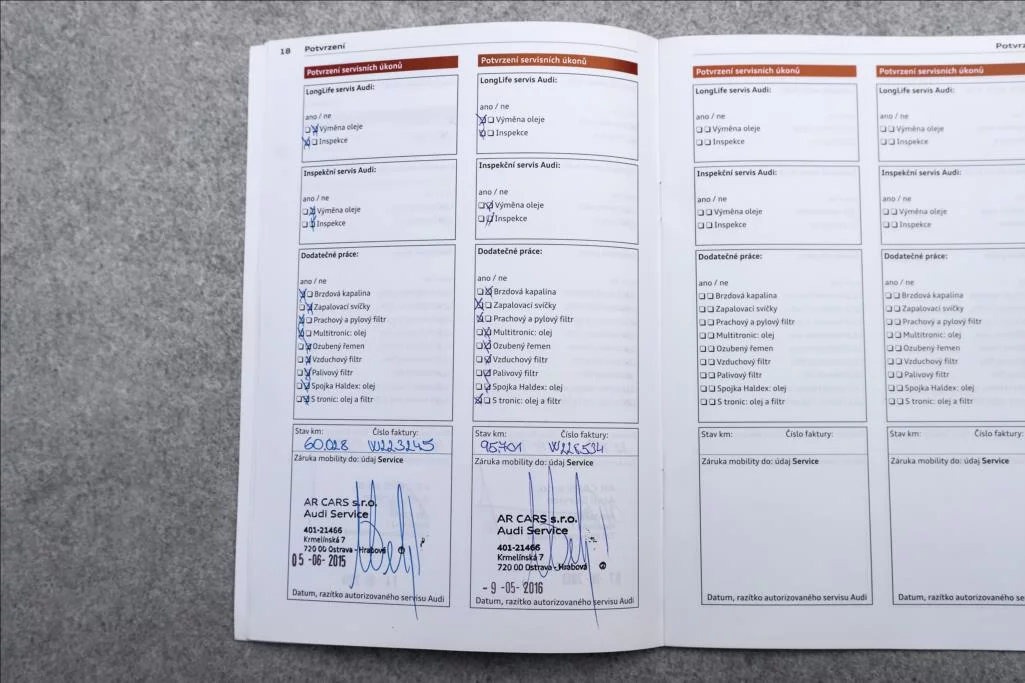 18 Potvrzení
Potvrzení servisních úkonů
LongLife servis Audi:
ano / ne
Výměna oleje
Inspekce
Inspekční servis Audi:
ano / ne
Výměna oleje
Inspekce
Dodatečné práce:
ano / ne
Brzdová kapalina
Zapalovací svíčky
Prachový a pylový filtr
Multitronic: olej
Ozubený řemen
Vzduchový filtr
Palivový filtr
Spojka Haldex: olej
S tronic: olej a filtr
Stav km: Číslo faktury:
60.028 W223245
Záruka mobility do: údaj Service
AR CARS s.r.o.
Audi Service
401-21466
Krmelínská 7
720 00 Ostrava - Hrabová
05 -06- 2015
Datum, razítko autorizovaného servisu Audi
Potvrzení servisních úkonů
LongLife servis Audi:
ano / ne
Výměna oleje
Inspekce
Inspekční servis Audi:
ano / ne
Výměna oleje
Inspekce
Dodatečné práce:
ano / ne
Brzdová kapalina
Zapalovací svíčky
Prachový a pylový filtr
Multitronic: olej
Ozubený řemen
Vzduchový filtr
Palivový filtr
Spojka Haldex: olej
S tronic: olej a filtr
Stav km: Číslo faktury:
95.701 W228534
Záruka mobility do: údaj Service
AR CARS s.r.o.
Audi Service
401-21466
Krmelínská 7
720 00 Ostrava - Hrabová
- 9 -05- 2016
Datum, razítko autorizovaného servisu Audi
Potvrzení servisních úkonů
LongLife servis Audi:
ano / ne
Výměna oleje
Inspekce
Inspekční servis Audi:
ano / ne
Výměna oleje
Inspekce
Dodatečné práce:
ano / ne
Brzdová kapalina
Zapalovací svíčky
Prachový a pylový filtr
Multitronic: olej
Ozubený řemen
Vzduchový filtr
Palivový filtr
Spojka Haldex: olej
S tronic: olej a filtr
Stav km: Číslo faktury:
Záruka mobility do: údaj Service
Datum, razítko autorizovaného servisu Audi
Potvrz
Potvrzení servisních úkonů
LongLife servis Audi:
ano / ne
Výměna oleje
Inspekce
Inspekční servis Audi:
ano / ne
Výměna oleje
Inspekce
Dodatečné práce:
ano / ne
Brzdová kapalina
Zapalovací svíčky
Prachový a pylový filtr
Multitronic: olej
Ozubený řemen
Vzduchový filtr
Palivový filtr
Spojka Haldex: olej
S tronic: olej a filtr
Stav km: Číslo faktury:
Záruka mobility do: údaj Service
Datum, razítko autorizovaného se